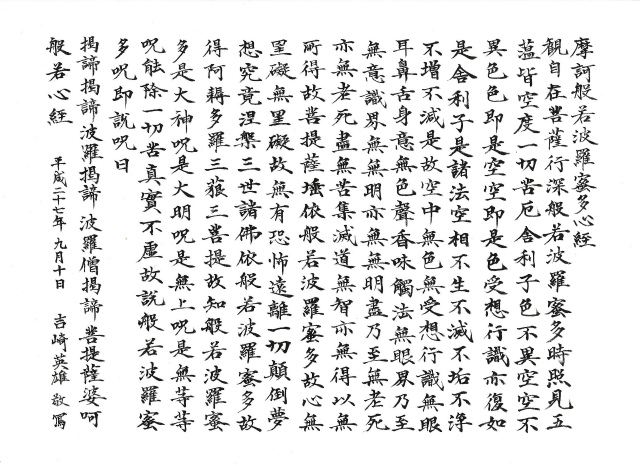 摩訶般若波羅蜜多心経
観自在菩薩行深般若波羅蜜多時照見五
蘊皆空度一切苦厄舎利子色不異空空不
異色色即是空空即是色受想行識亦復如
是舎利子是諸法空相不生不滅不垢不浄
不増不減是故空中無色無受想行識無眼
耳鼻舌身意無色聲香味觸法無眼界乃至
無意識界無無明亦無無明盡乃至無老死
亦無老死盡無苦集滅道無智亦無得以無
所得故菩提薩埵依般若波羅蜜多故心無
罣礙無罣礙故無有恐怖遠離一切顛倒夢
想究竟涅槃三世諸佛依般若波羅蜜多故
得阿耨多羅三藐三菩提故知般若波羅蜜
多是大神呪是大明呪是無上呪是無等等
呪能除一切苦真實不虚故説般若波羅蜜
多呪即説呪曰
揭諦揭諦波羅揭諦 波羅僧揭諦 菩提薩婆呵
般若心経 平成二十七年 九月十日 吉崎英雄 敬寫